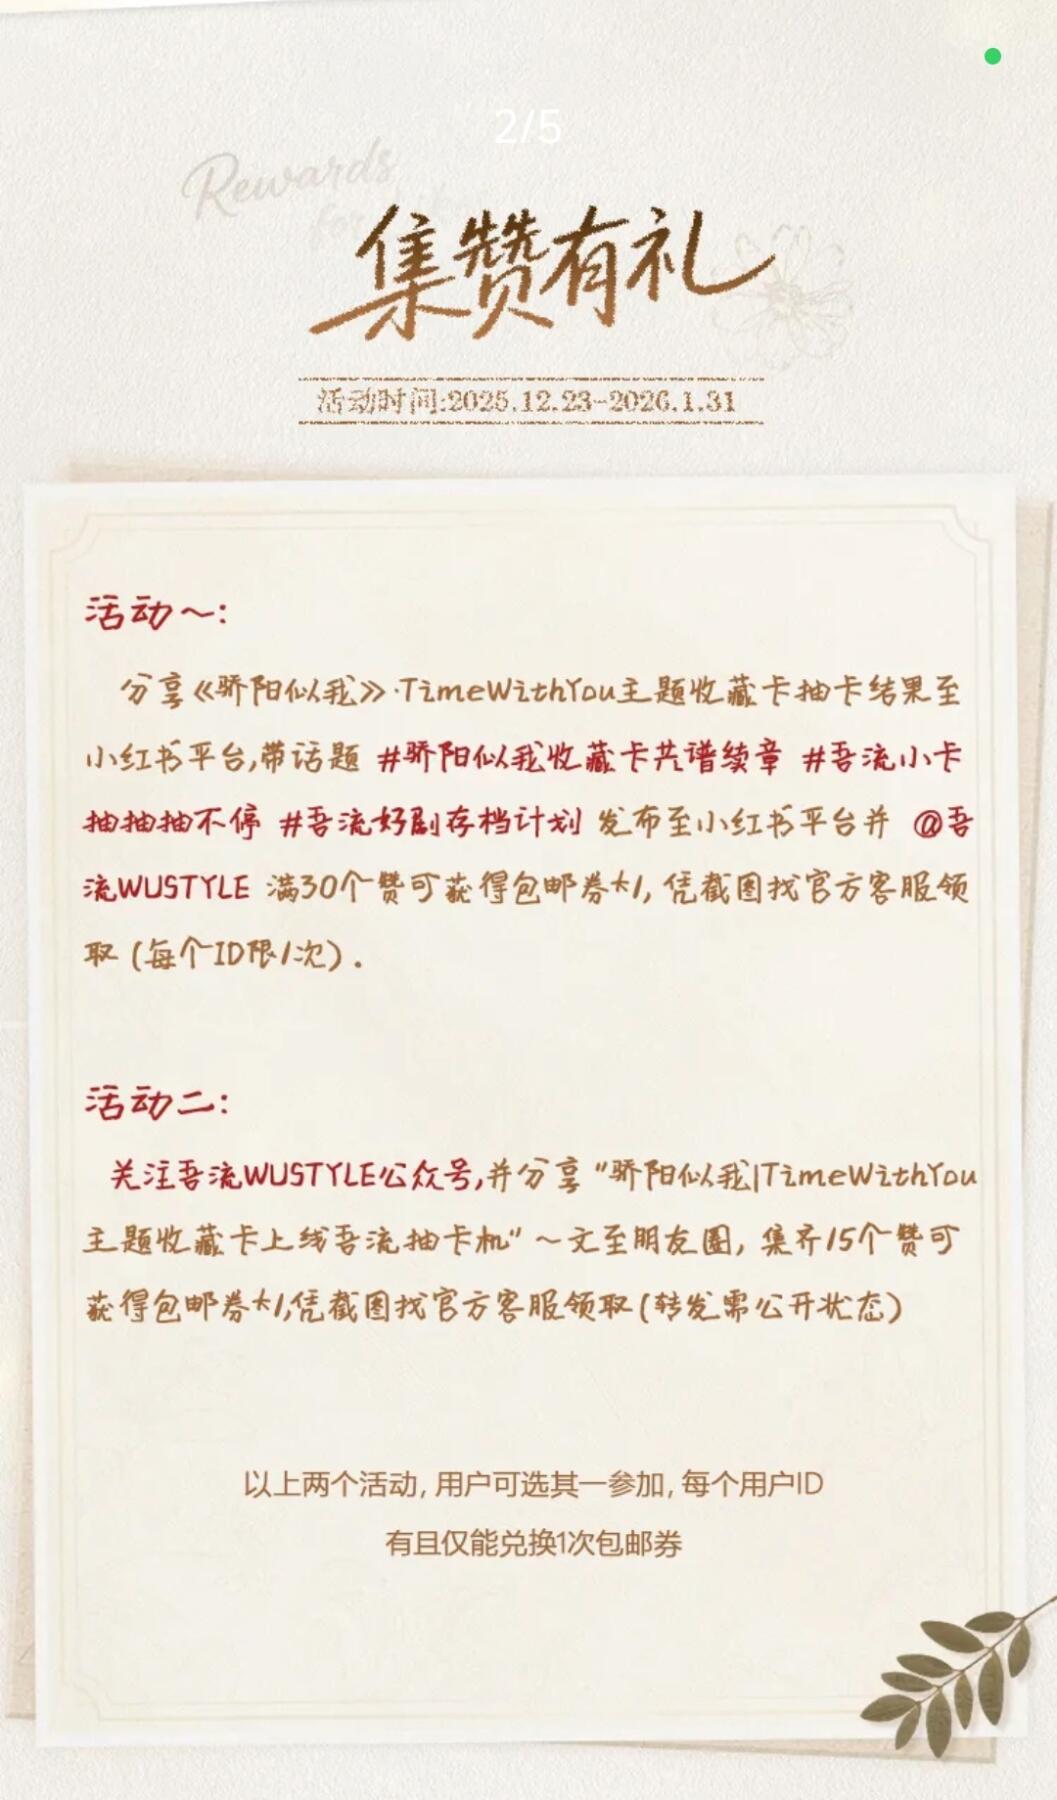 2/5
Rewards
for
集赞有礼
活动时间:2025.12.23-2026.1.31
活动一:
分享《骄阳似我》·TimeWithYou主题收藏卡抽卡结果至
小红书平台,带话题 #骄阳似我收藏卡共谱续章 #吾流小卡
抽抽抽不停 #吾流好剧存档计划 发布至小红书平台并 @吾
流WUSTYLE 满30个赞可获得包邮券*1, 凭截图找官方客服领
取 (每个ID限1次) .
活动二:
关注吾流WUSTYLE公众号,并分享"骄阳似我|TimeWithYou
主题收藏卡上线吾流抽卡机"一文至朋友圈, 集齐15个赞可
获得包邮券*1,凭截图找官方客服领取(转发需公开状态)
以上两个活动, 用户可选其一参加, 每个用户ID
有且仅能兑换1次包邮券